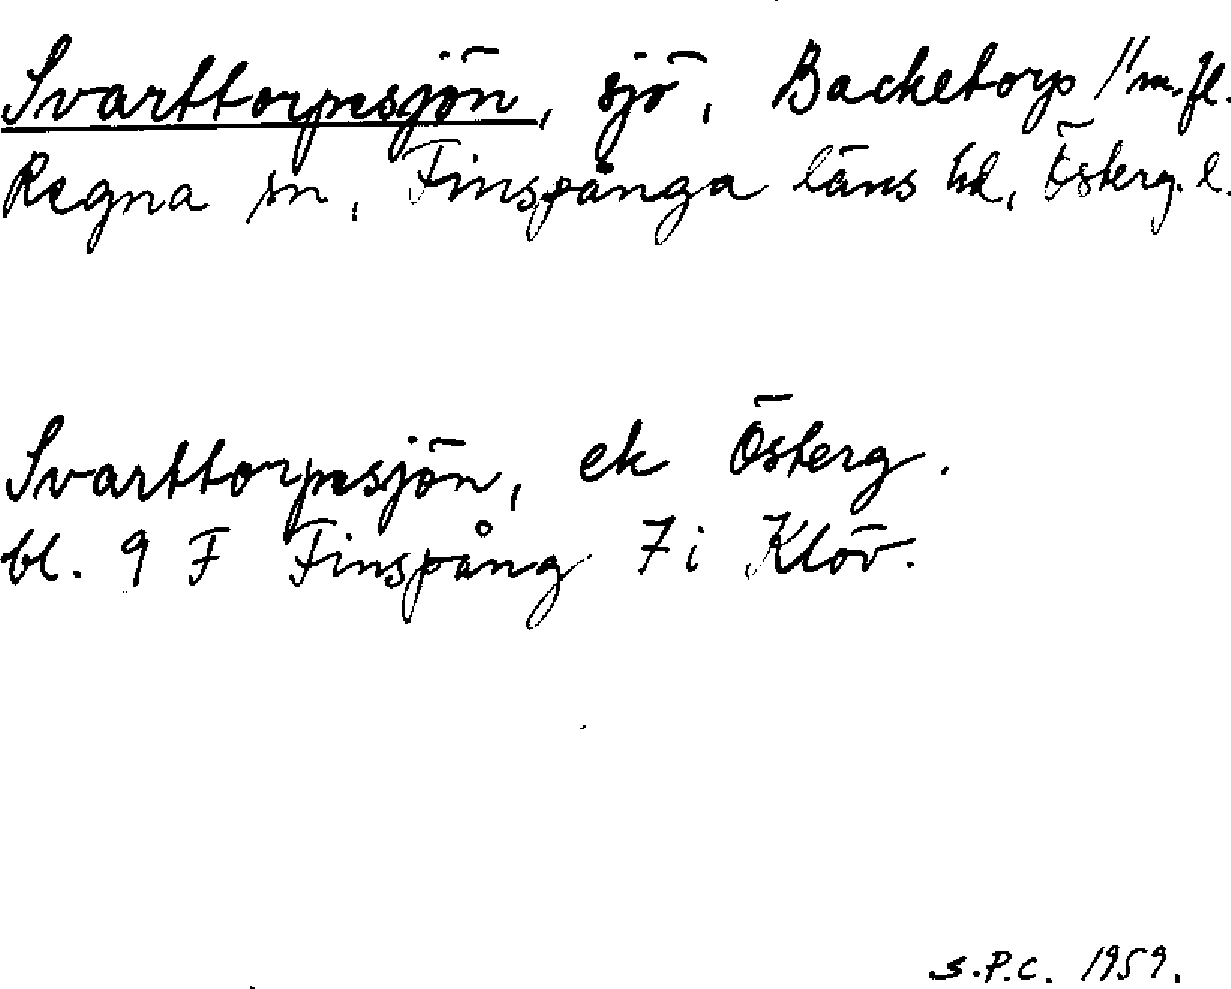 Svarttorpasjön, sjö, Backetorp 1/1 m.fl.
Regna sn, Finspånga läns hd, Österg. l.
Svarttorpasjön, ek Österg.
bl. 9 F Finspång 7 i Klöv.
S.P.C. 1959.